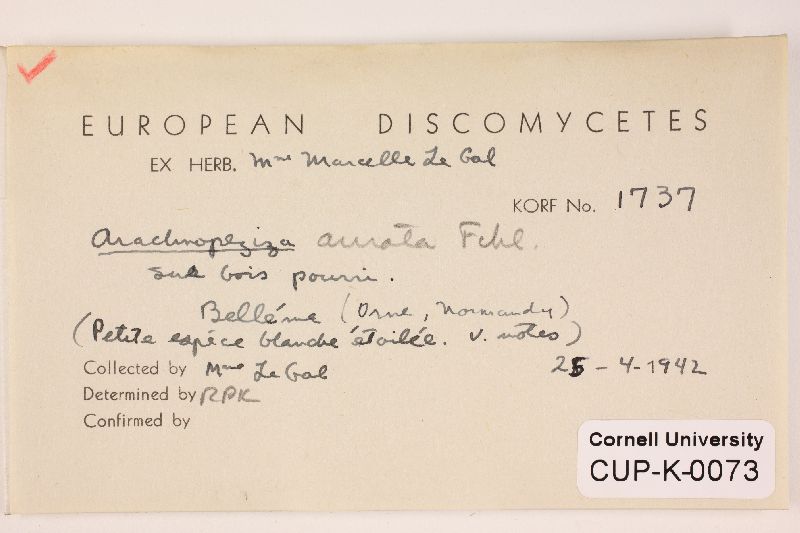 EUROPEAN DISCOMYCETES
EX HERB. Mme Marcelle Le Gal
KORF No. 1737
Arachnopeziza aurata Fckl.
sur bois pourri.
Bellême (Orne, Normandy)
(Petite espèce blanche étoilée. v. notes)
Collected by Mme Le Gal 25-4-1942
Determined by RPK
Confirmed by
Cornell University
CUP-K-0073